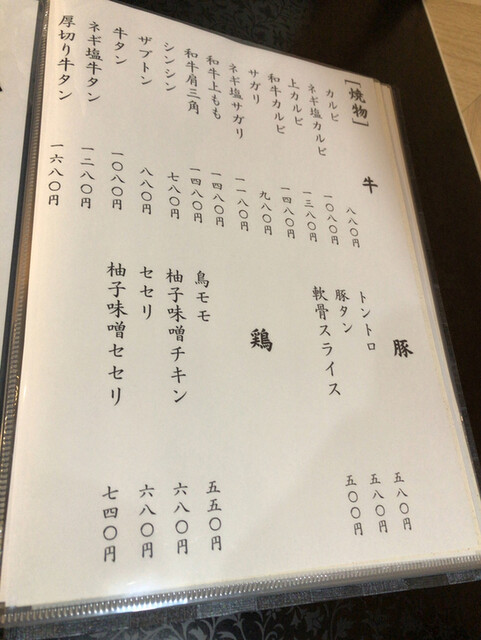 [焼物]
牛
カルビ 八八〇円
ネギ塩カルビ 一〇八〇円
上カルビ 一三八〇円
和牛カルビ 一四八〇円
サガリ 九八〇円
ネギ塩サガリ 一一八〇円
和牛上もも 一四八〇円
和牛肩三角 一四八〇円
シンシン 七八〇円
ザブトン 八八〇円
牛タン 一〇八〇円
ネギ塩牛タン 一二八〇円
厚切り牛タン 一六八〇円
豚
トントロ 五八〇円
豚タン 五八〇円
軟骨スライス 五〇〇円
鶏
鳥モモ 五五〇円
柚子味噌チキン 六八〇円
セセリ 六八〇円
柚子味噌セセリ 七四〇円